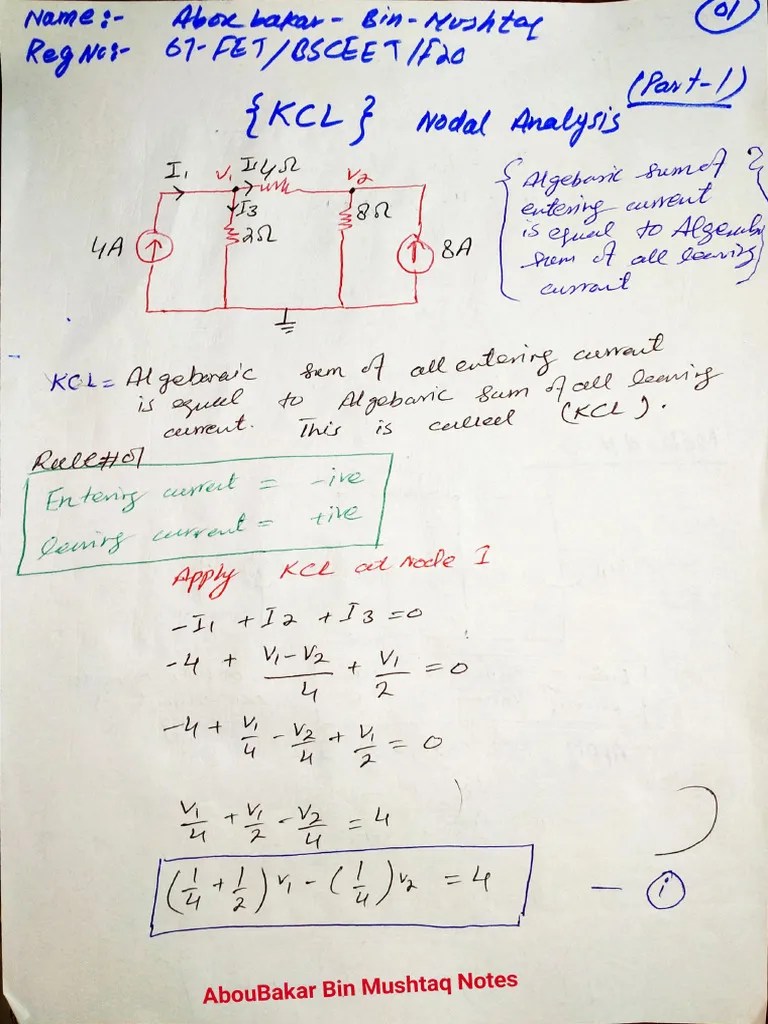 Name:- Abou bakar - Bin - Mushtaq
01
Reg No:- 67-FET/BSCEET/F20
(Part-1)
{KCL} Nodal Analysis
I1 V1 I1 4Ω V2
I3
2Ω
8Ω
4A
8A
{ Algebaric sum of }
entering current
is equal to Algebaric
sum of all leaving
current
KCL = Algebaraic sum of all entering current
is equal to Algebaric sum of all leaving
current. This is called (KCL).
Rule#01
Entering current = -ive
leaving current = +ive
Apply KCL at Node 1
-I1 + I2 + I3 = 0
-4 + (V1-V2)/4 + V1/2 = 0
-4 + V1/4 - V2/4 + V1/2 = 0
V1/4 + V1/2 - V2/4 = 4
(1/4 + 1/2) V1 - (1/4) V2 = 4 — (i)
AbouBakar Bin Mushtaq Notes